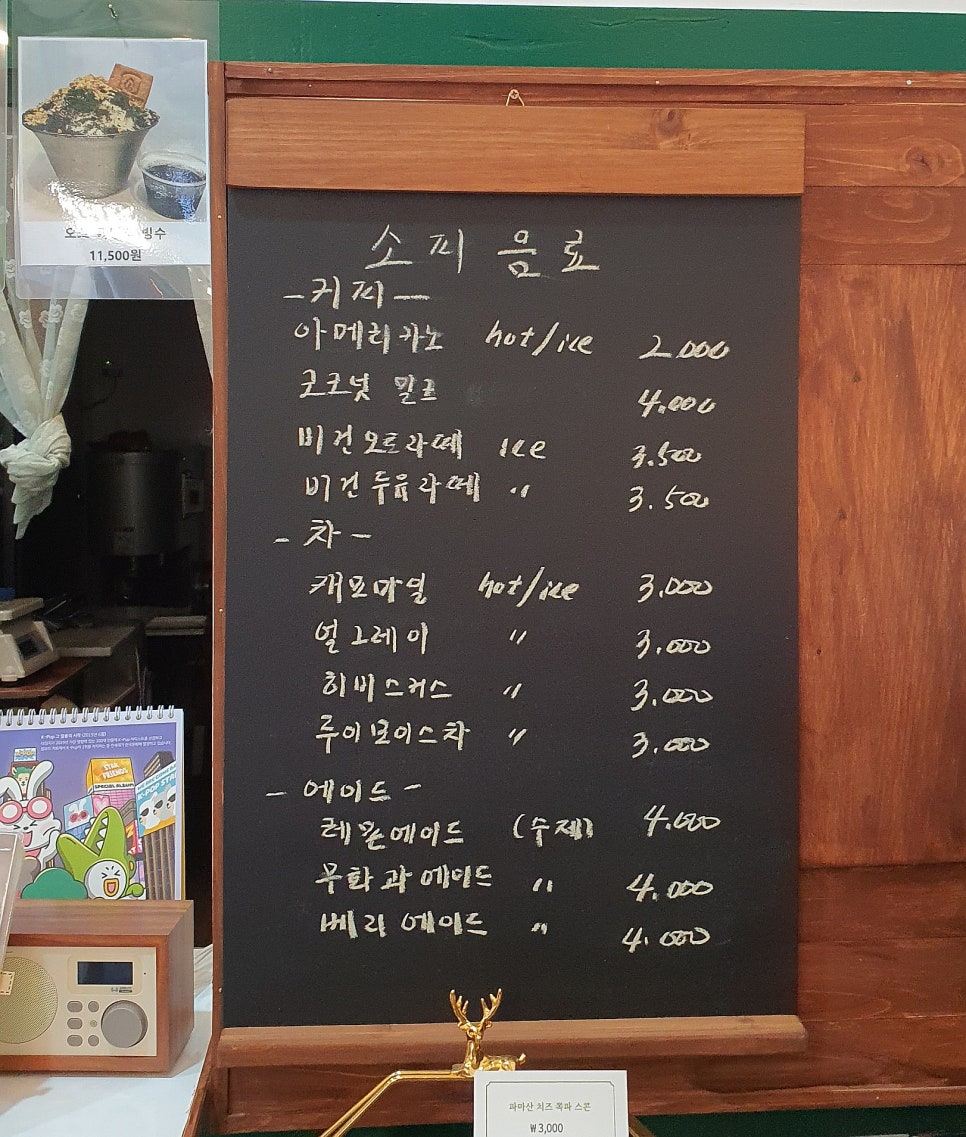 11,500원
소피 음료
-커피-
아메리카노 hot/ice 2.000
코코넛 밀크 4.000
비건오트라떼 ice 3.500
비건두유라떼 〃 3.500
- 차 -
캐모마일 hot/ice 3.000
얼그레이 〃 3.000
히비스커스 〃 3.000
루이보이스차 〃 3.000
- 에이드 -
레몬에이드 (수제) 4.000
무화과에이드 〃 4.000
베리에이드 〃 4.000
STAR
FRIENDS
SPECIAL ALBUM
K-POP STAR
파마산 치즈 쪽파 스콘
₩3,000